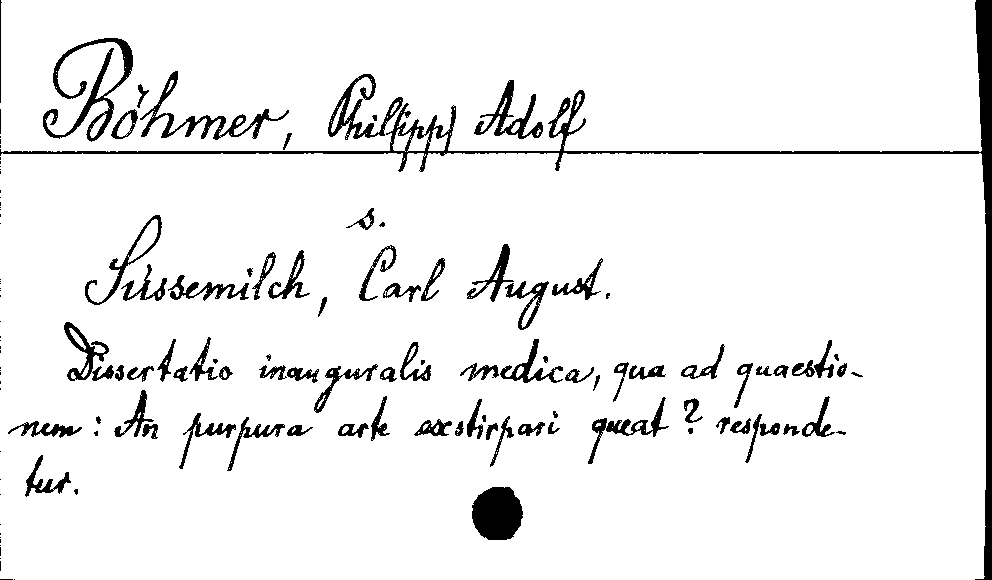 Böhmer, Phil(ipp) Adolf
s.
Süssemilch, Carl August.
Dissertatio inauguralis medica, qua ad quaestio-
nem: An purpura arte exstirpari queat? responde-
tur.